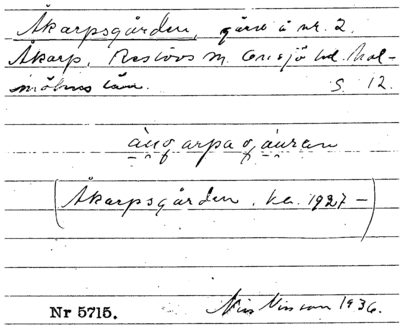 Åkarpsgården, gård å nr. 2.
Åkarp, Reslövs sn. Onsjö hd. Mal-
möhus län. S. 12.
àu̯garpagáu̯ran
(Åkarpsgården. ka. 1927 –)
Nr 5715. Nils Nilsson 1936.